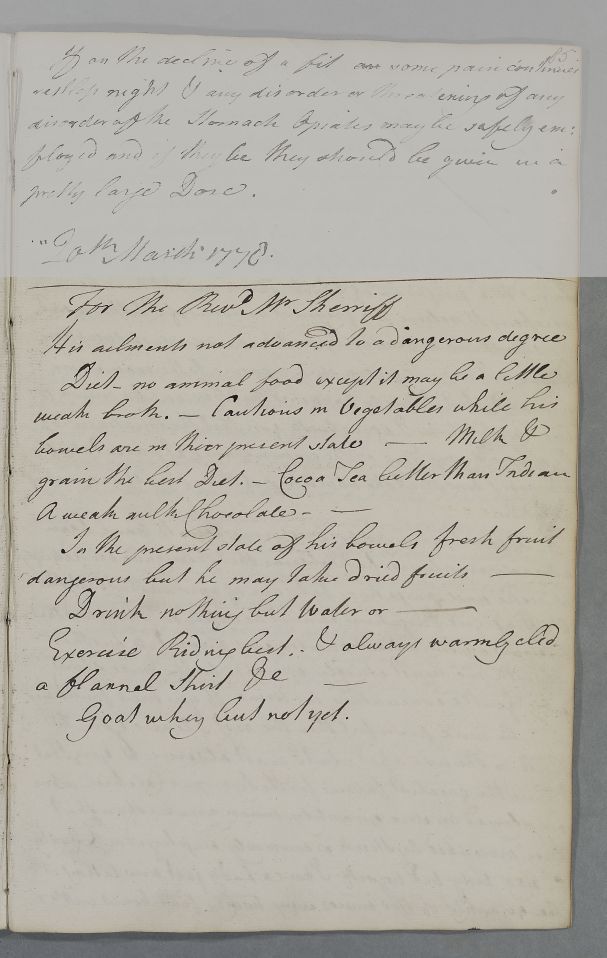 85
If on the decline of a fit some pain continues
restless night & any disorder or threatening of any
disorder of the Stomach Opiates may be safely em:
ployed and if they be they should be given in a
pretty large Dose.
20th March 1778.
For the Revd Mr Sherriff
His ailments not advanced to a dangerous degree
Diet - no animal food except it may be a little
weak broth. - Cautious in Vegetables while his
bowels are in thier present state - Milk &
grain the best Diet. - Cocoa Tea better than Indian
A weak milk Chocolate - -
In the present state of his bowels fresh fruit
dangerous but he may take dried fruits -
Drink nothing but Water or -
Exercise Riding best. & always warmly cled
a flannel Shirt &c -
Goat whey but not yet.